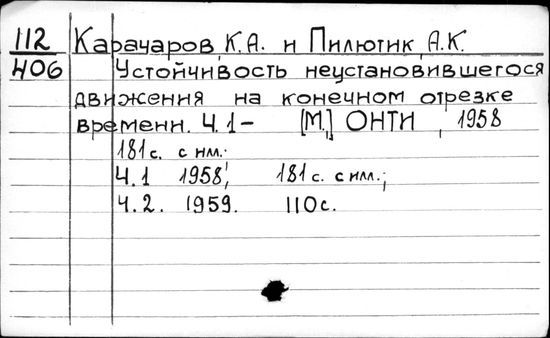 112 Карачаров, К.А. и Пилютик, А.К.
406 Устойчивость неустановившегося
движения на конечном отрезке
времени. Ч.1- [М.,] ОНТИ, 1958
181 с. с илл.
Ч.1 1958, 181 с. с илл.;
Ч.2. 1959. 110с.